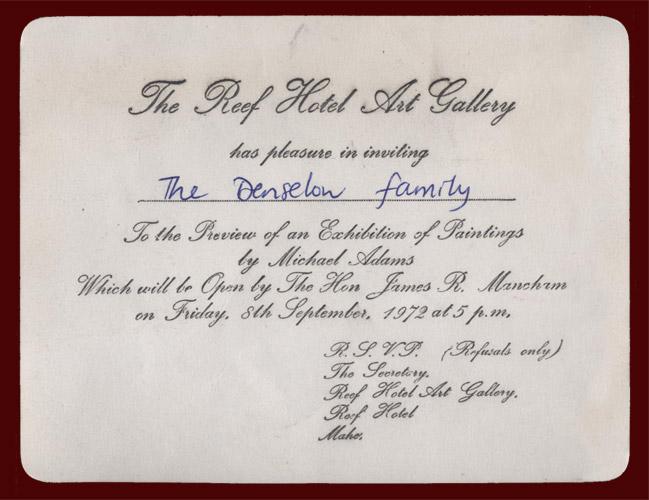 The Reef Hotel Art Gallery
has pleasure in inviting
The Denselow family
To the Preview of an Exhibition of Paintings
by Michael Adams
Which will be Open by The Hon James R. Mancham
on Friday, 8th September, 1972 at 5 p.m.
R.S.V.P. (Refusals only)
The Secretary.
Reef Hotel Art Gallery.
Reef Hotel
Mahe.